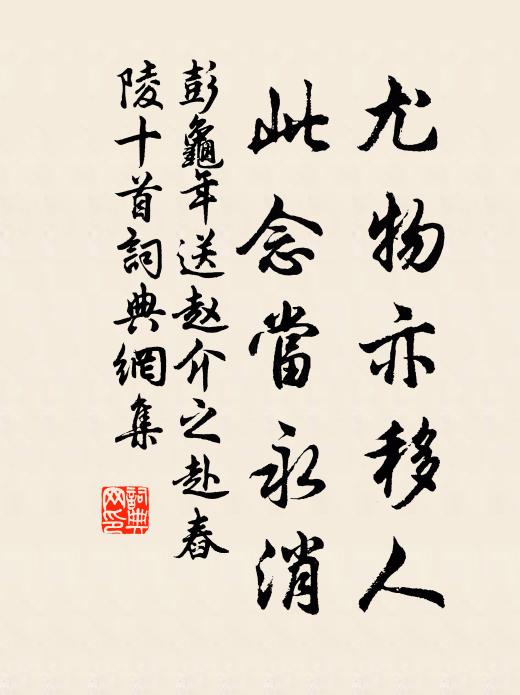 尤物亦移人
此念當永消
彭龜年送赵介之赴舂
陵十首詞典網集
詞典
网印